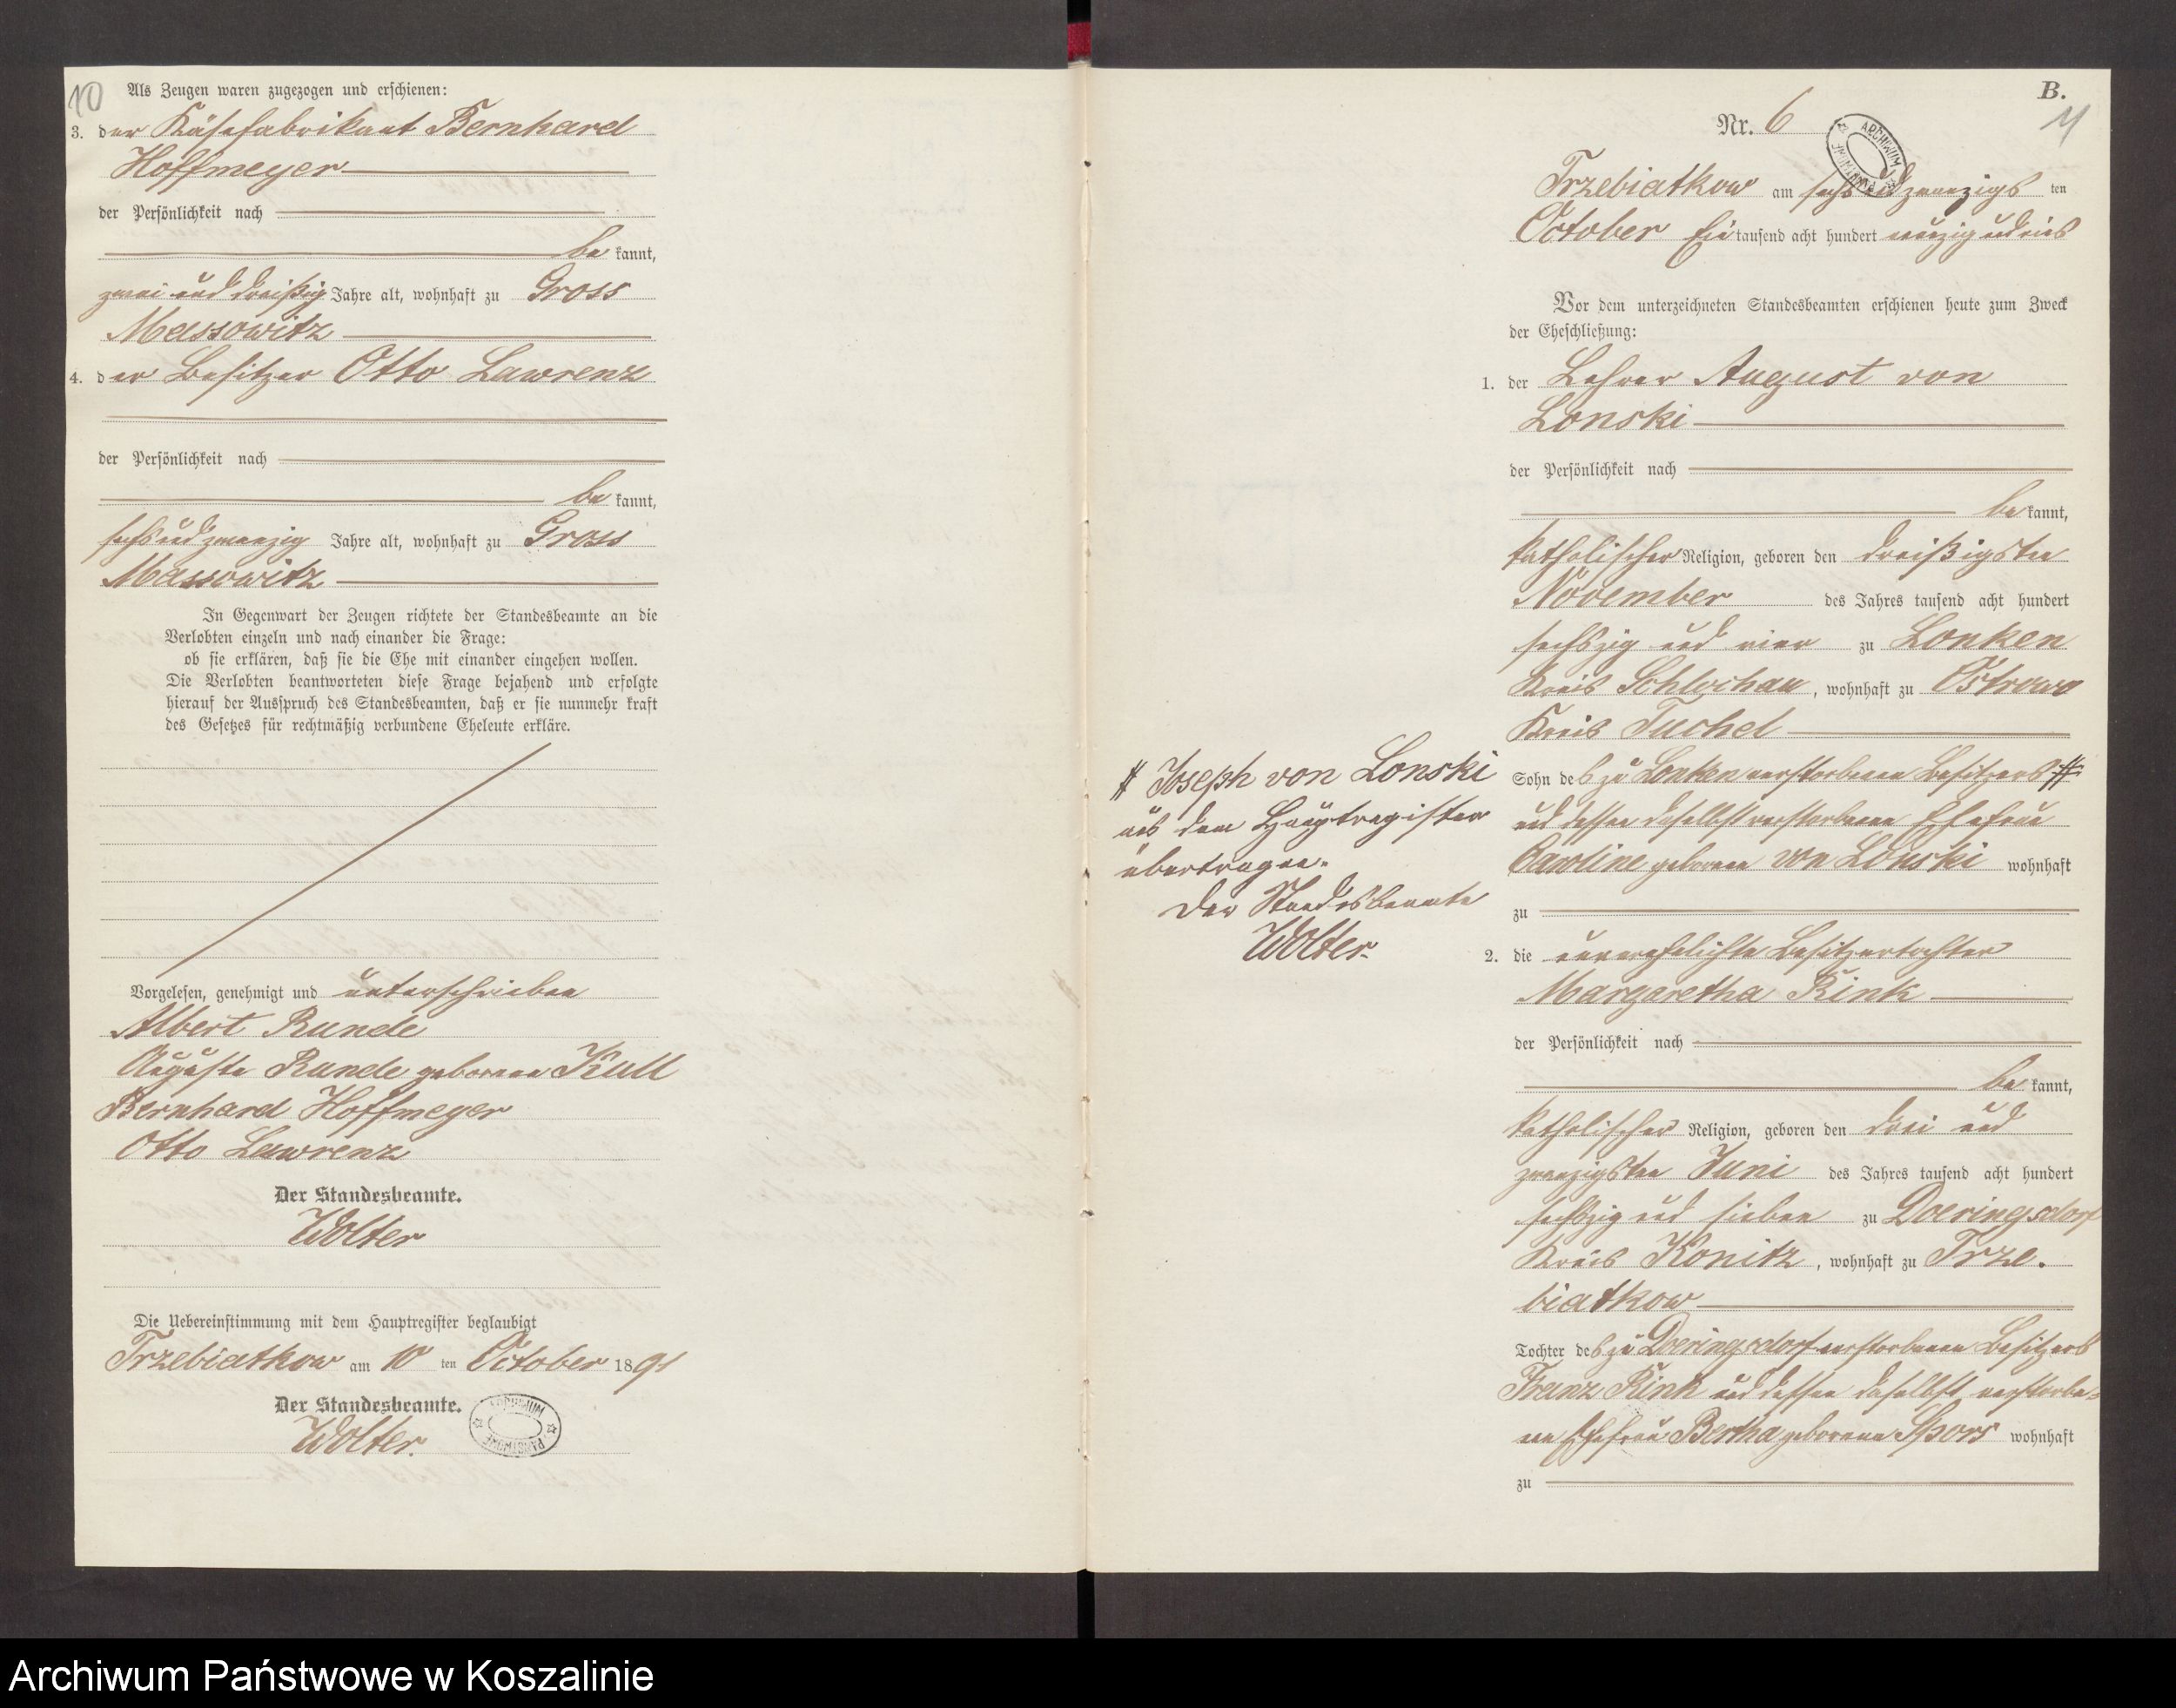 10
Als Zeugen waren zugezogen und erschienen:
3. der Käsefabrikant Bernhard
Hoffmeyer
der Persönlichkeit nach
bekannt,
zwei und dreißig Jahre alt, wohnhaft zu Gross
Massowitz
4. der Besitzer Otto Lawrenz
der Persönlichkeit nach
bekannt,
sechsundzwanzig Jahre alt, wohnhaft zu Gross
Massowitz
In Gegenwart der Zeugen richtete der Standesbeamte an die
Verlobten einzeln und nach einander die Frage:
ob sie erklären, daß sie die Ehe mit einander eingehen wollen.
Die Verlobten beantworteten diese Frage bejahend und erfolgte
hierauf der Ausspruch des Standesbeamten, daß er sie nunmehr kraft
des Gesetzes für rechtmäßig verbundene Eheleute erkläre.
Vorgelesen, genehmigt und unterschrieben
Albert Runde
Auguste Runde geborene Kull
Bernhard Hoffmeyer
Otto Lawrenz
Der Standesbeamte.
Wolter
Die Uebereinstimmung mit dem Hauptregister beglaubigt
Trzebiatkow am 10 ten October 1891
Der Standesbeamte.
Wolter.
ARCHIWUM PAŃSTWOWE
B.
11
Nr. 6
ARCHIWUM PAŃSTWOWE
Trzebiatkow am sechsundzwanzigsten
October Eintausend acht hundert neunzig und eins
Vor dem unterzeichneten Standesbeamten erschienen heute zum Zweck
der Eheschließung:
1. der Lehrer August von
Lonski
der Persönlichkeit nach
bekannt,
katholischer Religion, geboren den dreißigsten
November des Jahres tausend acht hundert
sechszig und vier zu Lonken
Kreis Schlochau, wohnhaft zu Ostrowo
Kreis Tuchel
Sohn des zu Lonken verstorbenen Besitzers #
und dessen daselbst verstorbenen Ehefrau
Caroline geborene von Lonski wohnhaft
zu
# Joseph von Lonski
aus dem Hauptregister
übertragen.
Der Standesbeamte
Wolter.
2. die unverehelichte Besitzertochter
Margaretha Rink
der Persönlichkeit nach
bekannt,
katholischer Religion, geboren den drei und
zwanzigsten Juni des Jahres tausend acht hundert
sechszig und sieben zu Doeringsdorf
Kreis Konitz, wohnhaft zu Trze-
biatkow
Tochter des zu Doeringsdorf verstorbenen Besitzers
Franz Rink und dessen daselbst verstorbe-
nen Ehefrau Bertha geborene Spors wohnhaft
zu
Archiwum Państwowe w Koszalinie